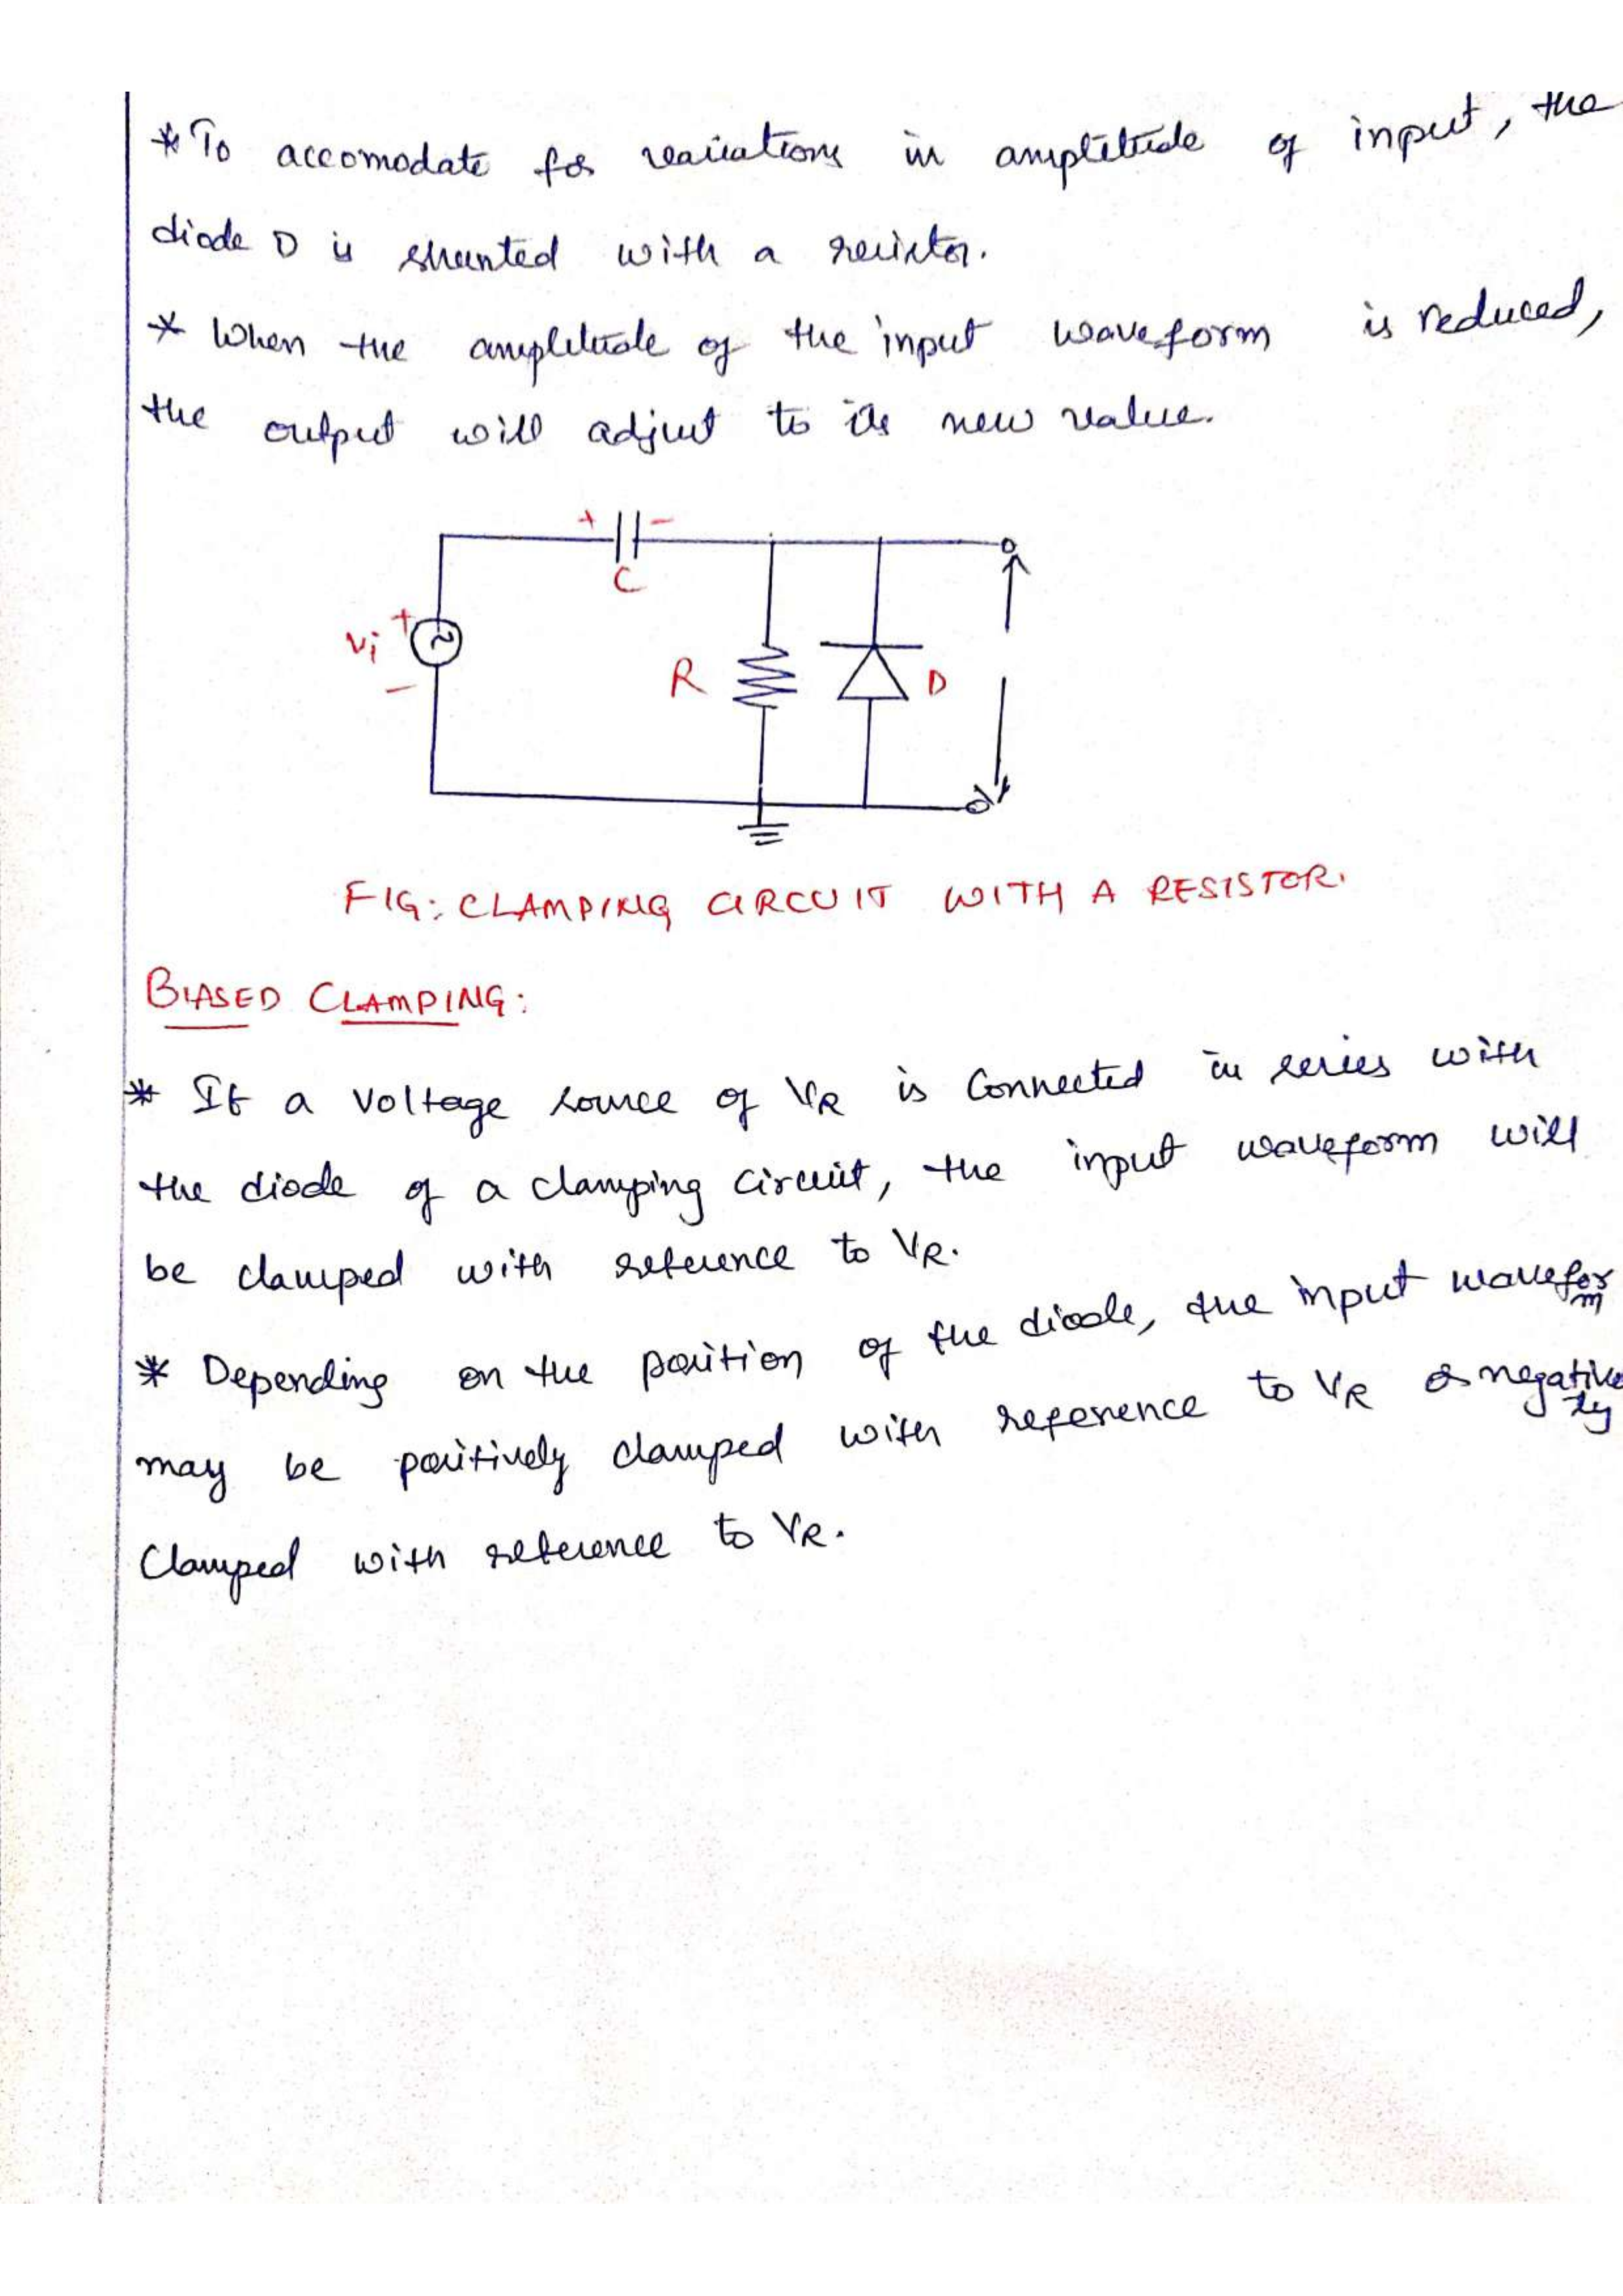 * To accomodate for variations in amplitude of input, the
diode D is shunted with a resistor.
* When the amplitude of the input waveform is reduced,
the output will adjust to its new value.
+ -
C
Vi + -
R
D
FIG: CLAMPING CIRCUIT WITH A RESISTOR.
BIASED CLAMPING:
* If a voltage source of VR is Connected in series with
the diode of a clamping circuit, the input waveform will
be clamped with reference to VR.
* Depending on the position of the diode, the input waveform
may be positively clamped with reference to VR or negatively
Clamped with reference to VR.